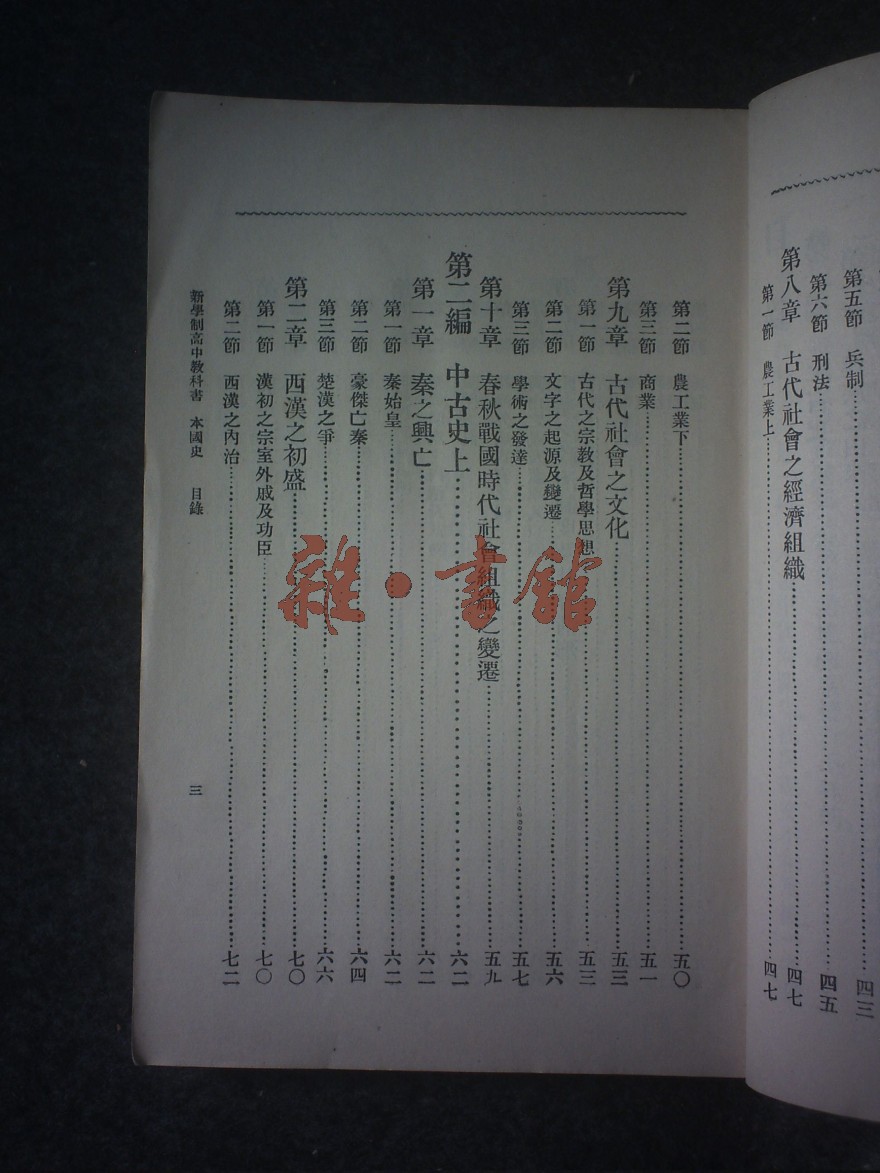 第五節　兵制……四三
第六節　刑法……四五
第八章　古代社會之經濟組織……四七
第一節　農工業上……四七
第二節　農工業下……五〇
第三節　商業……五一
第九章　古代社會之文化……五三
第一節　古代之宗教及哲學思想……五三
第二節　文字之起源及變遷……五六
第三節　學術之發達……五七
第十章　春秋戰國時代社會組織之變遷……五九
第二編　中古史上……六二
第一章　秦之興亡……六二
第一節　秦始皇……六二
第二節　豪傑亡秦……六四
第三節　楚漢之爭……六六
第二章　西漢之初盛……七〇
第一節　漢初之宗室外戚及功臣……七〇
第二節　西漢之內治……七二
新學制高中教科書　本國史　目錄　三
雜·書館